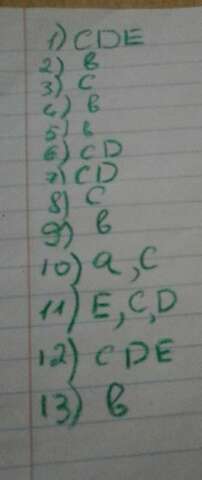 1) CDE
2) B
3) C
4) B
5) B
6) CD
7) CD
8) C
9) B
10) a, C
11) E, C, D
12) CDE
13) B